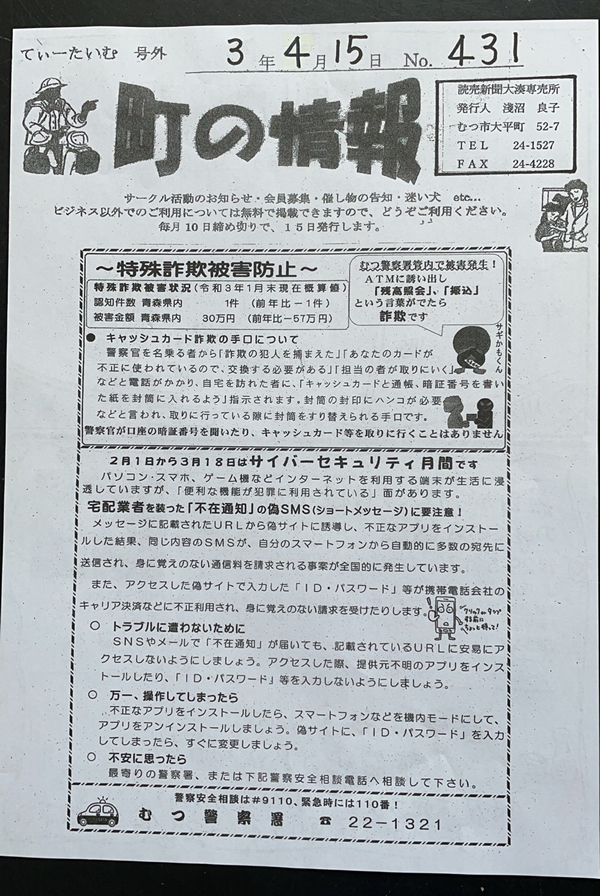 てぃーたいむ 号外
3年4月15日 No. 431
町の情報
読売新聞大湊専売所
発行人 淺沼 良子
むつ市大平町 52-7
TEL 24-1527
FAX 24-4228
サークル活動のお知らせ・会員募集・催し物の告知・迷い犬 etc...
ビジネス以外でのご利用については無料で掲載できますので、どうぞご利用ください。
毎月10日締め切りで、15日発行します。
～特殊詐欺被害防止～
特殊詐欺被害状況(令和3年1月末現在概算値)
認知件数 青森県内 1件 (前年比－1件)
被害金額 青森県内 30万円 (前年比－57万円)
むつ警察署管内で被害発生!
ATMに誘い出し
「残高照会」、「振込」
という言葉がでたら
詐欺です
サギかもくん
● キャッシュカード詐欺の手口について
警察官を名乗る者から「詐欺の犯人を捕まえた」「あなたのカードが
不正に使われているので、交換する必要がある」「担当の者が取りにいく」
などと電話がかかり、自宅を訪れた者に、「キャッシュカードと通帳、暗証番号を書い
た紙を封筒に入れるよう」指示されます。封筒の封印にハンコが必要
などと言われ、取りに行っている隙に封筒をすり替えられる手口です。
警察官が口座の暗証番号を聞いたり、キャッシュカード等を取りに行くことはありません
2月1日から3月18日はサイバーセキュリティ月間です
パソコン・スマホ、ゲーム機などインターネットを利用する端末が生活に浸
透していますが、「便利な機能が犯罪に利用されている」面があります。
宅配業者を装った「不在通知」の偽SMS(ショートメッセージ)に要注意!
メッセージに記載されたURLから偽サイトに誘導し、不正なアプリをインストー
ルした結果、同じ内容のSMSが、自分のスマートフォンから自動的に多数の宛先に
送信され、身に覚えのない通信料を請求される事案が全国的に発生しています。
また、アクセスした偽サイトで入力した「ID・パスワード」等が携帯電話会社の
キャリア決済などに不正利用され、身に覚えのない請求を受けたりします。
クリックorタップ
する前に
ちょっと待って!
○ トラブルに遭わないために
SNSやメールで「不在通知」が届いても、記載されているURLに安易にア
クセスしないようにしましょう。アクセスした際、提供元不明のアプリをインス
トールしたり、「ID・パスワード」等を入力しないようにしましょう。
○ 万一、操作してしまったら
不正なアプリをインストールしたら、スマートフォンなどを機内モードにして、
アプリをアンインストールしましょう。偽サイトに、「ID・パスワード」を入力
してしまったら、すぐに変更しましょう。
○ 不安に思ったら
最寄りの警察署、または下記警察安全相談電話へ相談して下さい。
警察安全相談は#9110、緊急時には110番!
むつ警察署 ☎ 22-1321